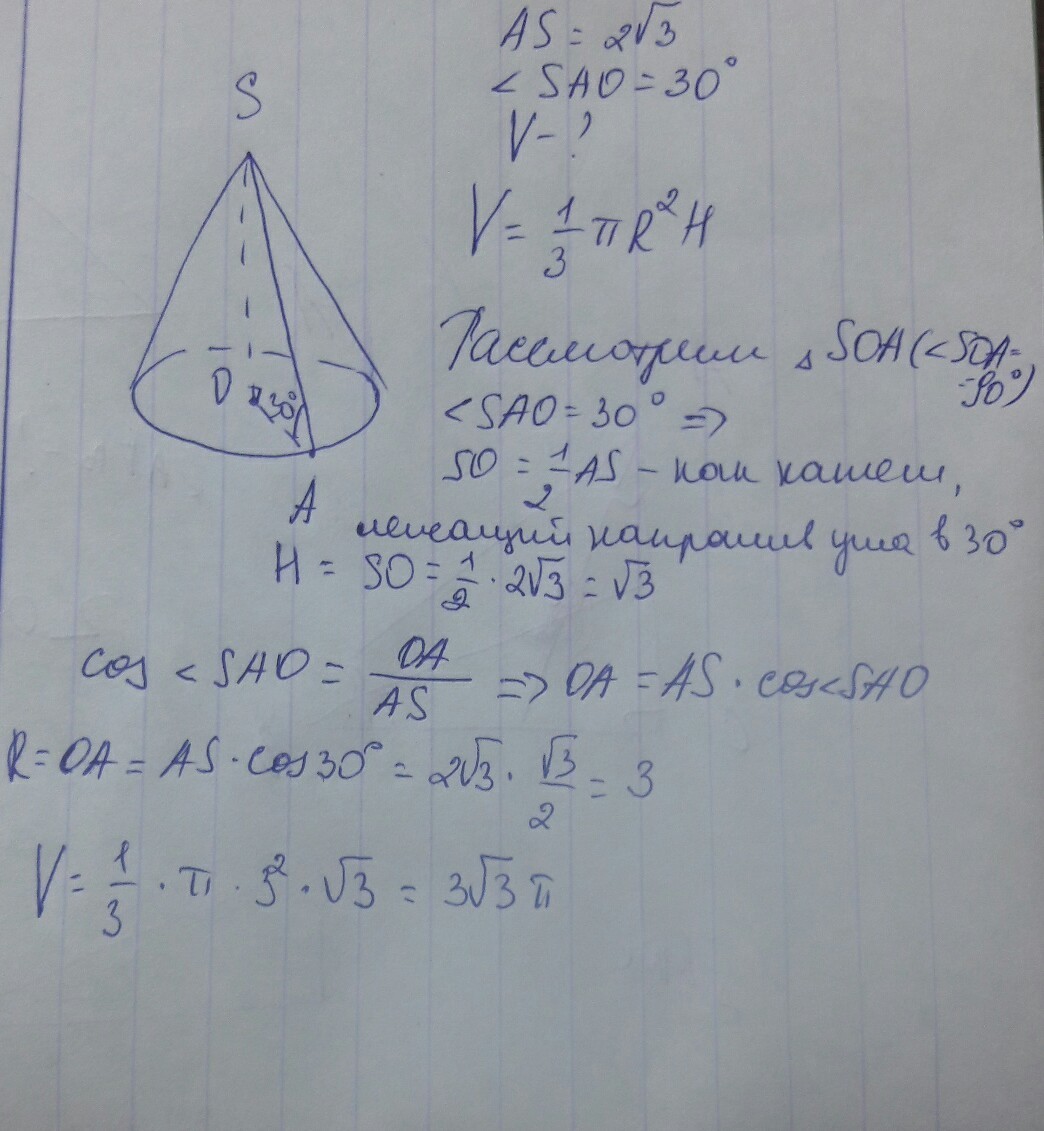 AS = 2√3
< SAO = 30°
V - ?
S
V = 1/3 π R² H
Рассмотрим △ SOA (< SOA = 90°)
O 30°
< SAO = 30° =>
SO = 1/2 AS – как катет,
A
лежащий напротив угла в 30°
H = SO = 1/2 · 2√3 = √3
cos < SAO = OA/AS => OA = AS · cos < SAO
R = OA = AS · cos 30° = 2√3 · √3/2 = 3
V = 1/3 · π · 3² · √3 = 3√3 π